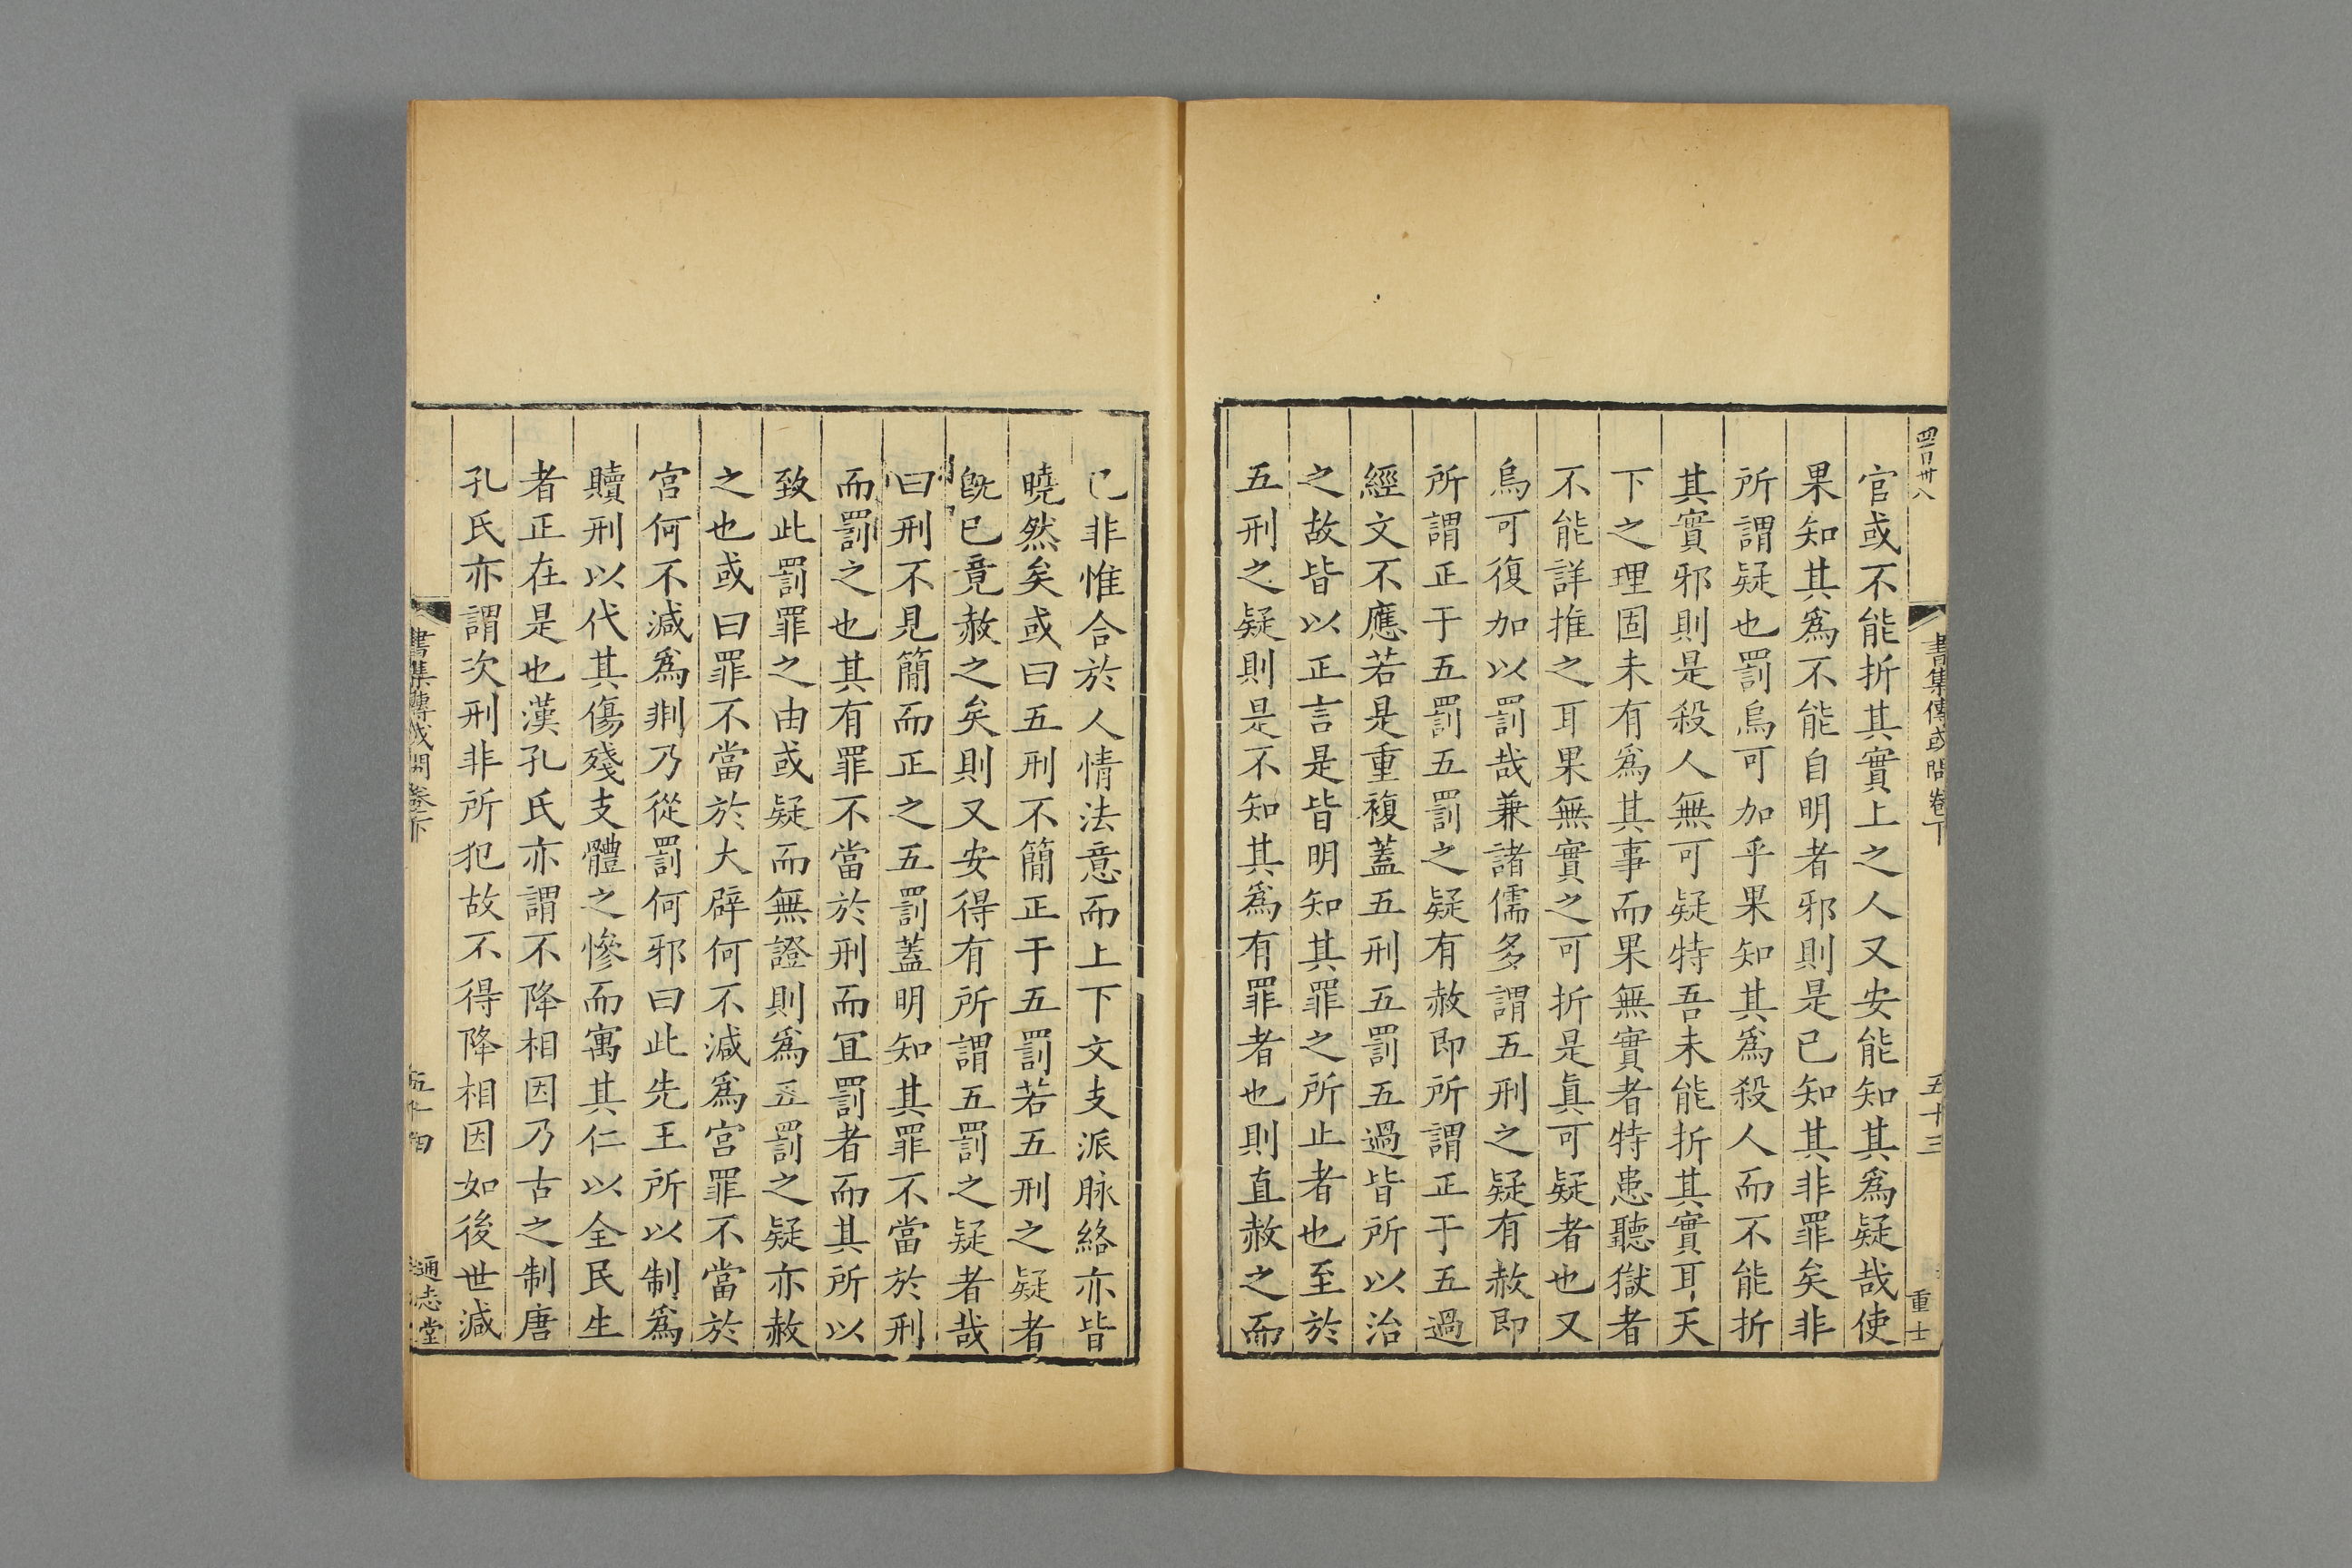 四百卅八
書集傳或問卷下
五十三
重士
官或不能折其實上之人又安能知其爲疑哉使
果知其爲不能自明者邪則是已知其非罪矣非
所謂疑也罰烏可加乎果知其爲殺人而不能折
其實邪則是殺人無可疑特吾未能折其實耳天
下之理固未有爲其事而果無實者特患聽獄者
不能詳推之耳果無實之可折是眞可疑者也又
烏可復加以罰哉兼諸儒多謂五刑之疑有赦即
所謂正于五罰五罰之疑有赦即所謂正于五過
經文不應若是重複蓋五刑五罰五過皆所以治
之故皆以正言是皆明知其罪之所止者也至於
五刑之疑則是不知其爲有罪者也則直赦之而
已非惟合於人情法意而上下文支派脉絡亦皆
曉然矣或曰五刑不簡正于五罰若五刑之疑者
旣已竟赦之矣則又安得有所謂五罰之疑者哉
曰刑不見簡而正之五罰蓋明知其罪不當於刑
而罰之也其有罪不當於刑而宜罰者而其所以
致此罰罪之由或疑而無證則爲五罰之疑亦赦
之也或曰罪不當於大辟何不減爲宮罪不當於
宮何不減爲剕乃從罰何邪曰此先王所以制爲
贖刑以代其傷殘支體之慘而寓其仁以全民生
者正在是也漢孔氏亦謂不降相因乃古之制唐
孔氏亦謂次刑非所犯故不得降相因如後世減
書集傳或問卷下
五十四
通志堂